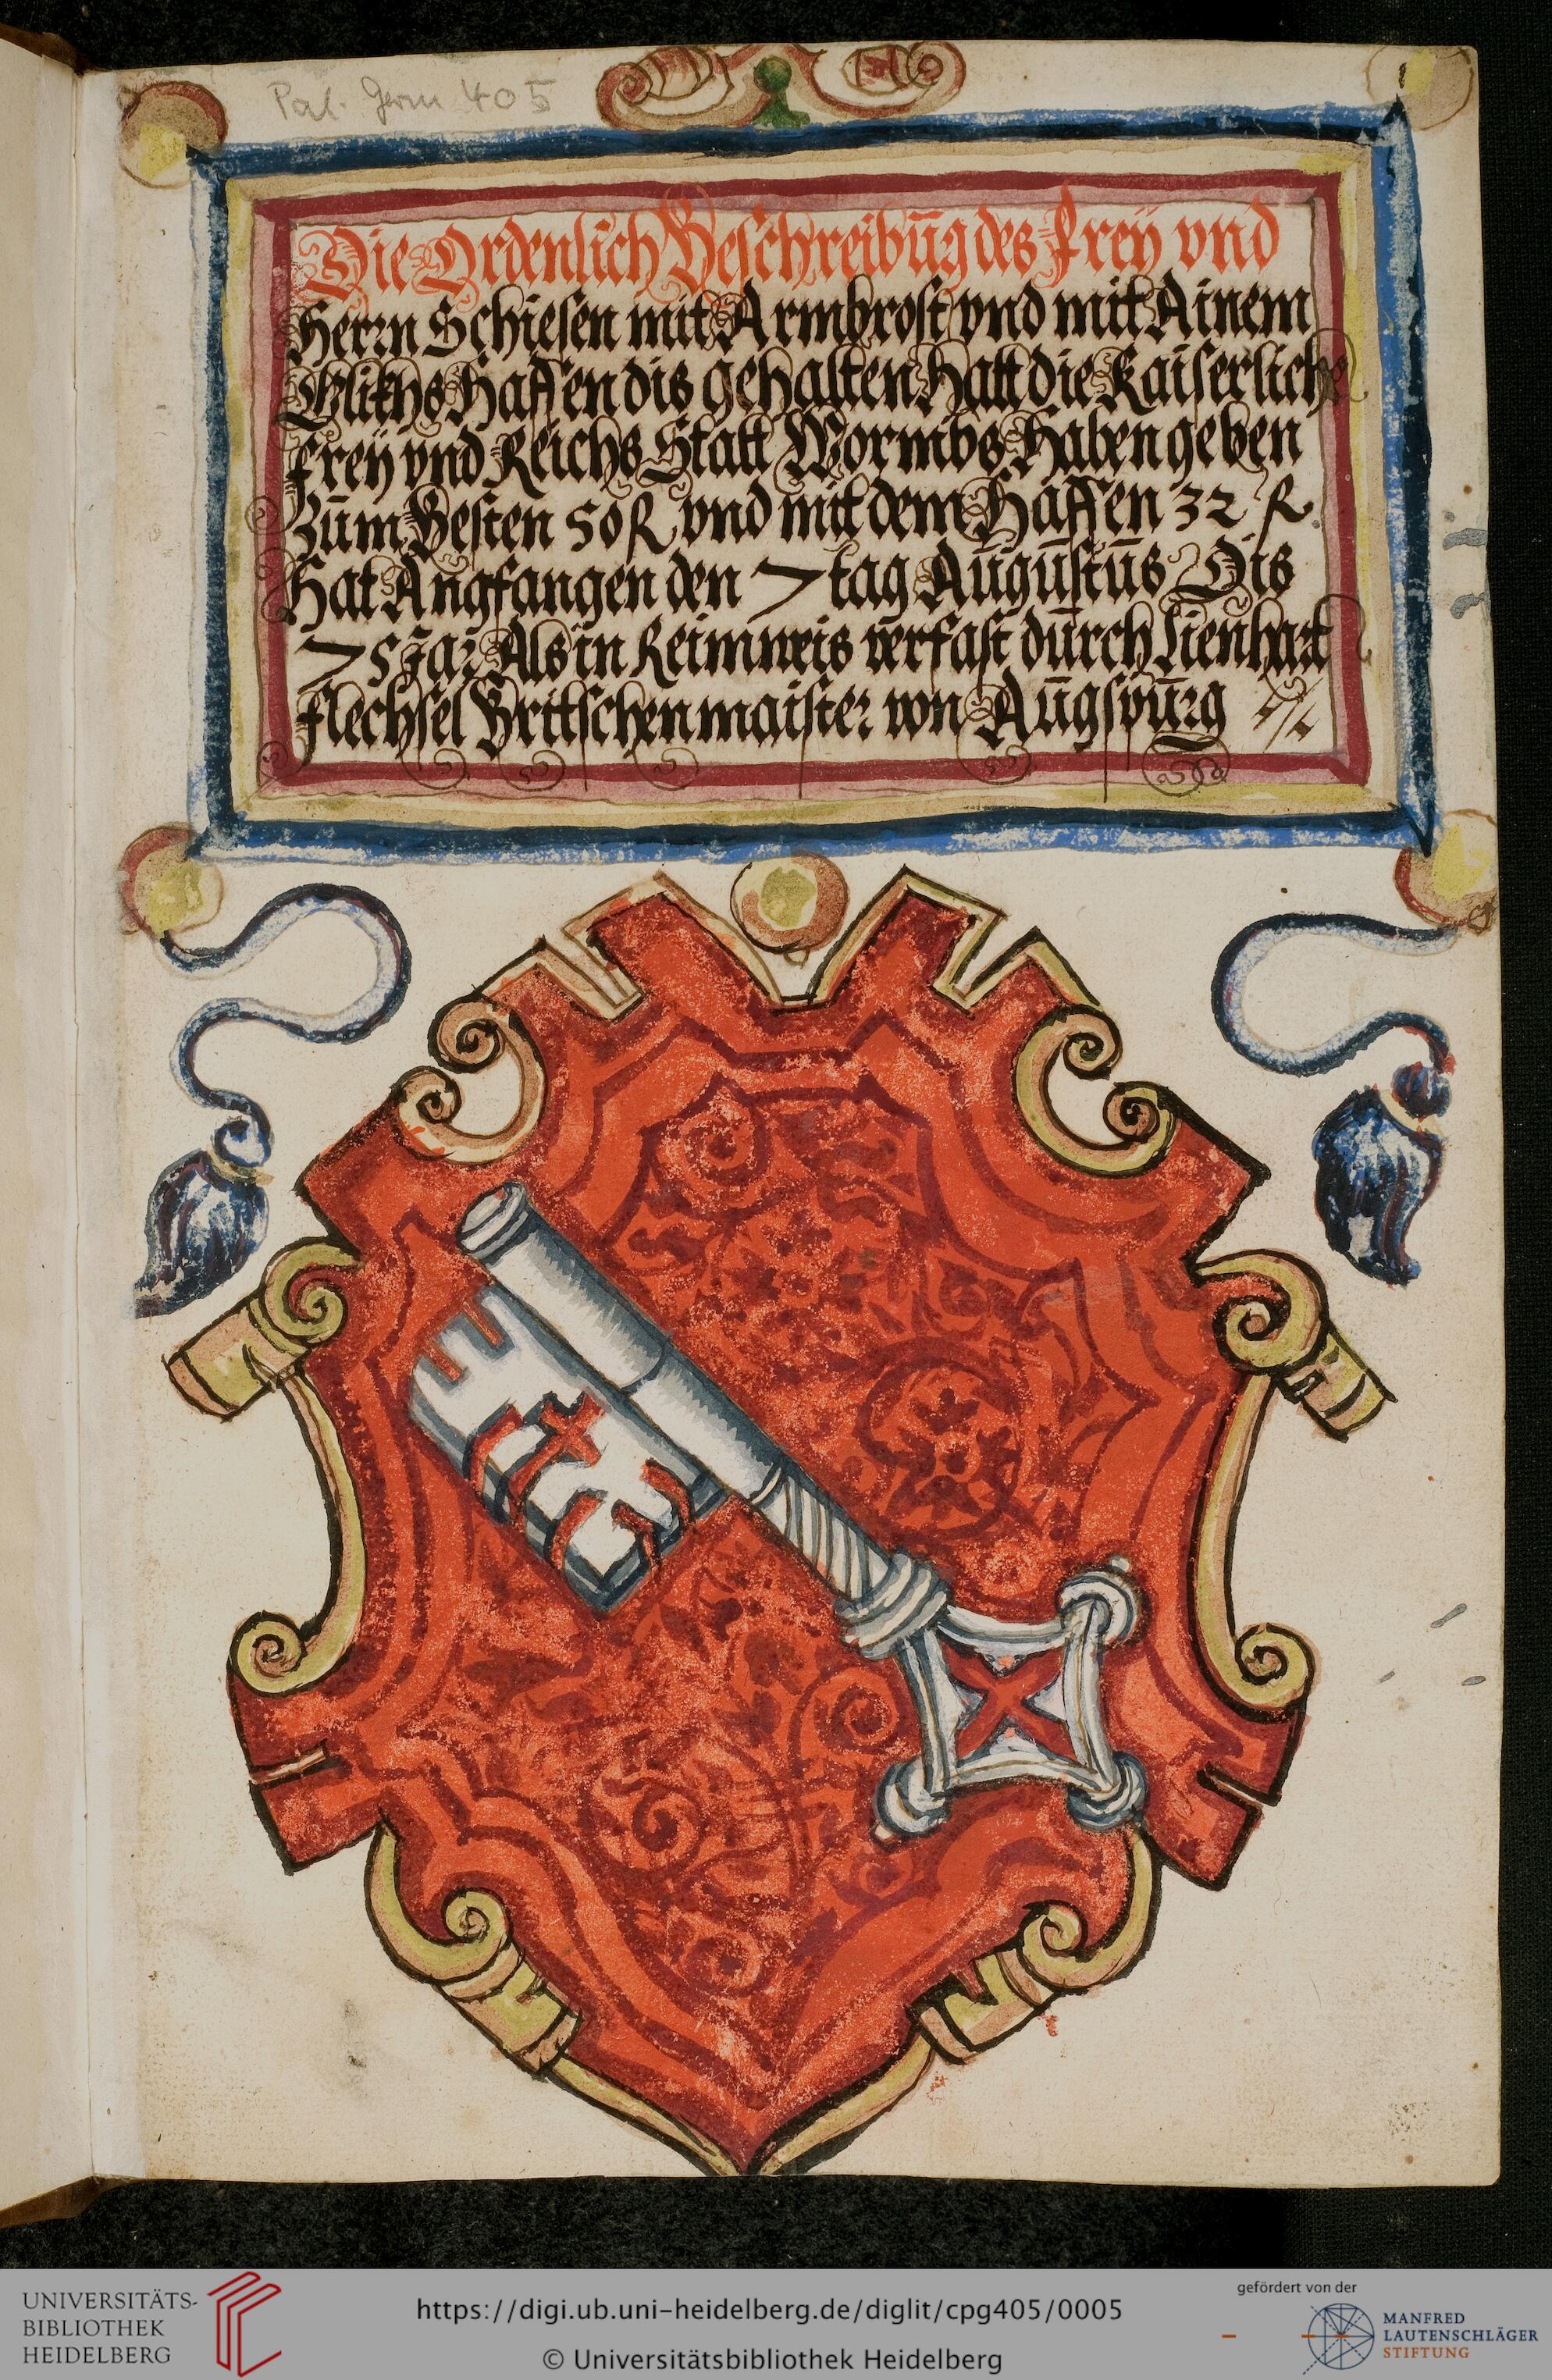 Pal. Germ 405
Die Ordenlich Beschreibūg des Frey vnd
Herrn Schiesen mit Armbrost vnd mit Ainem
Glikhs Haffen dis gehalten Hatt die Kaiserliche
Freÿ vnd Reichs Statt Wormbs Haben geben
Zūm Besten 50 R vnd mit dem Haffen 32 R
Hat Angfangen den 7 tag Aūgūstūs Dis
75 Jar Als in Reimweis verfast dūrch Lienhart
Flechsel Brittschenmaister von Aūgspūrg
UNIVERSITÄTS-
BIBLIOTHEK
HEIDELBERG
https://digi.ub.uni-heidelberg.de/diglit/cpg405/0005
© Universitätsbibliothek Heidelberg
gefördert von der
MANFRED
LAUTENSCHLÄGER
STIFTUNG